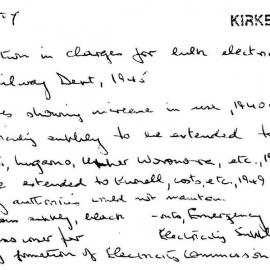 KIRKE
tion in charges for bulk electric
ilway Dept, 1945
es showing increase in use, 1940
supply to be extended to
Lugarno, Upper Woronora, etc., 19
extended to Kurnell, costs, etc., 1949
authorities could not maintain
supply, black - outs, Emergency
over for Electricity Suppl
formation of Electricity Commission